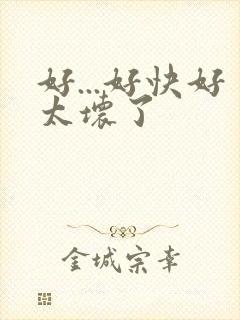 好...好快好
太壞了
金城宗幸